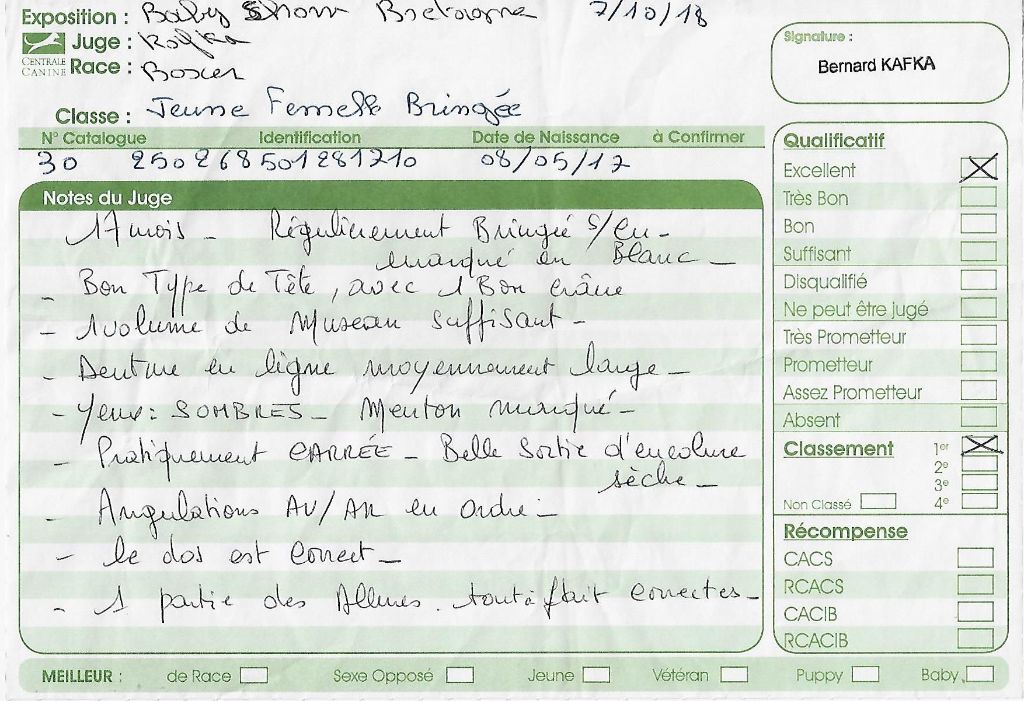 Exposition : Baby Show Bretagne 7/10/18
Juge : Kafka
CENTRALE CANINE
Race : Boxer
Signature :
Bernard KAFKA
Classe : Jeune Femelle Bringée
N° Catalogue Identification Date de Naissance à Confirmer
30 250268501281210 08/05/17
Notes du Juge
17 mois - Régulièrement Bringée s/en-
marqué en Blanc -
- Bon Type de Tête, avec 1 Bon crâne
- 1 volume de Museau suffisant -
- Denture en ligne moyennement large -
- Yeux : SOMBRES - Menton marqué -
- Pratiquement CARRÉE - Belle Sortie d'encolure
sèche -
- Angulations AV/AR en ordre -
- le dos est correct -
- 1 partie des Allures. tout à fait correctes -
Qualificatif
Excellent X
Très Bon
Bon
Suffisant
Disqualifié
Ne peut être jugé
Très Prometteur
Prometteur
Assez Prometteur
Absent
Classement 1er X
2e
3e
Non Classé 4e
Récompense
CACS
RCACS
CACIB
RCACIB
MEILLEUR : de Race Sexe Opposé Jeune Vétéran Puppy Baby